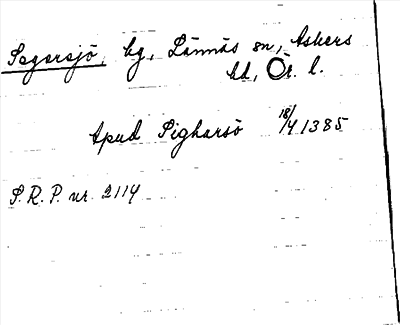 Segersjö, bg, Lännäs sn, Askers
hd, Ör. l.
Apud Sigharsö 18/4 1385
S.R.P. nr. 2114